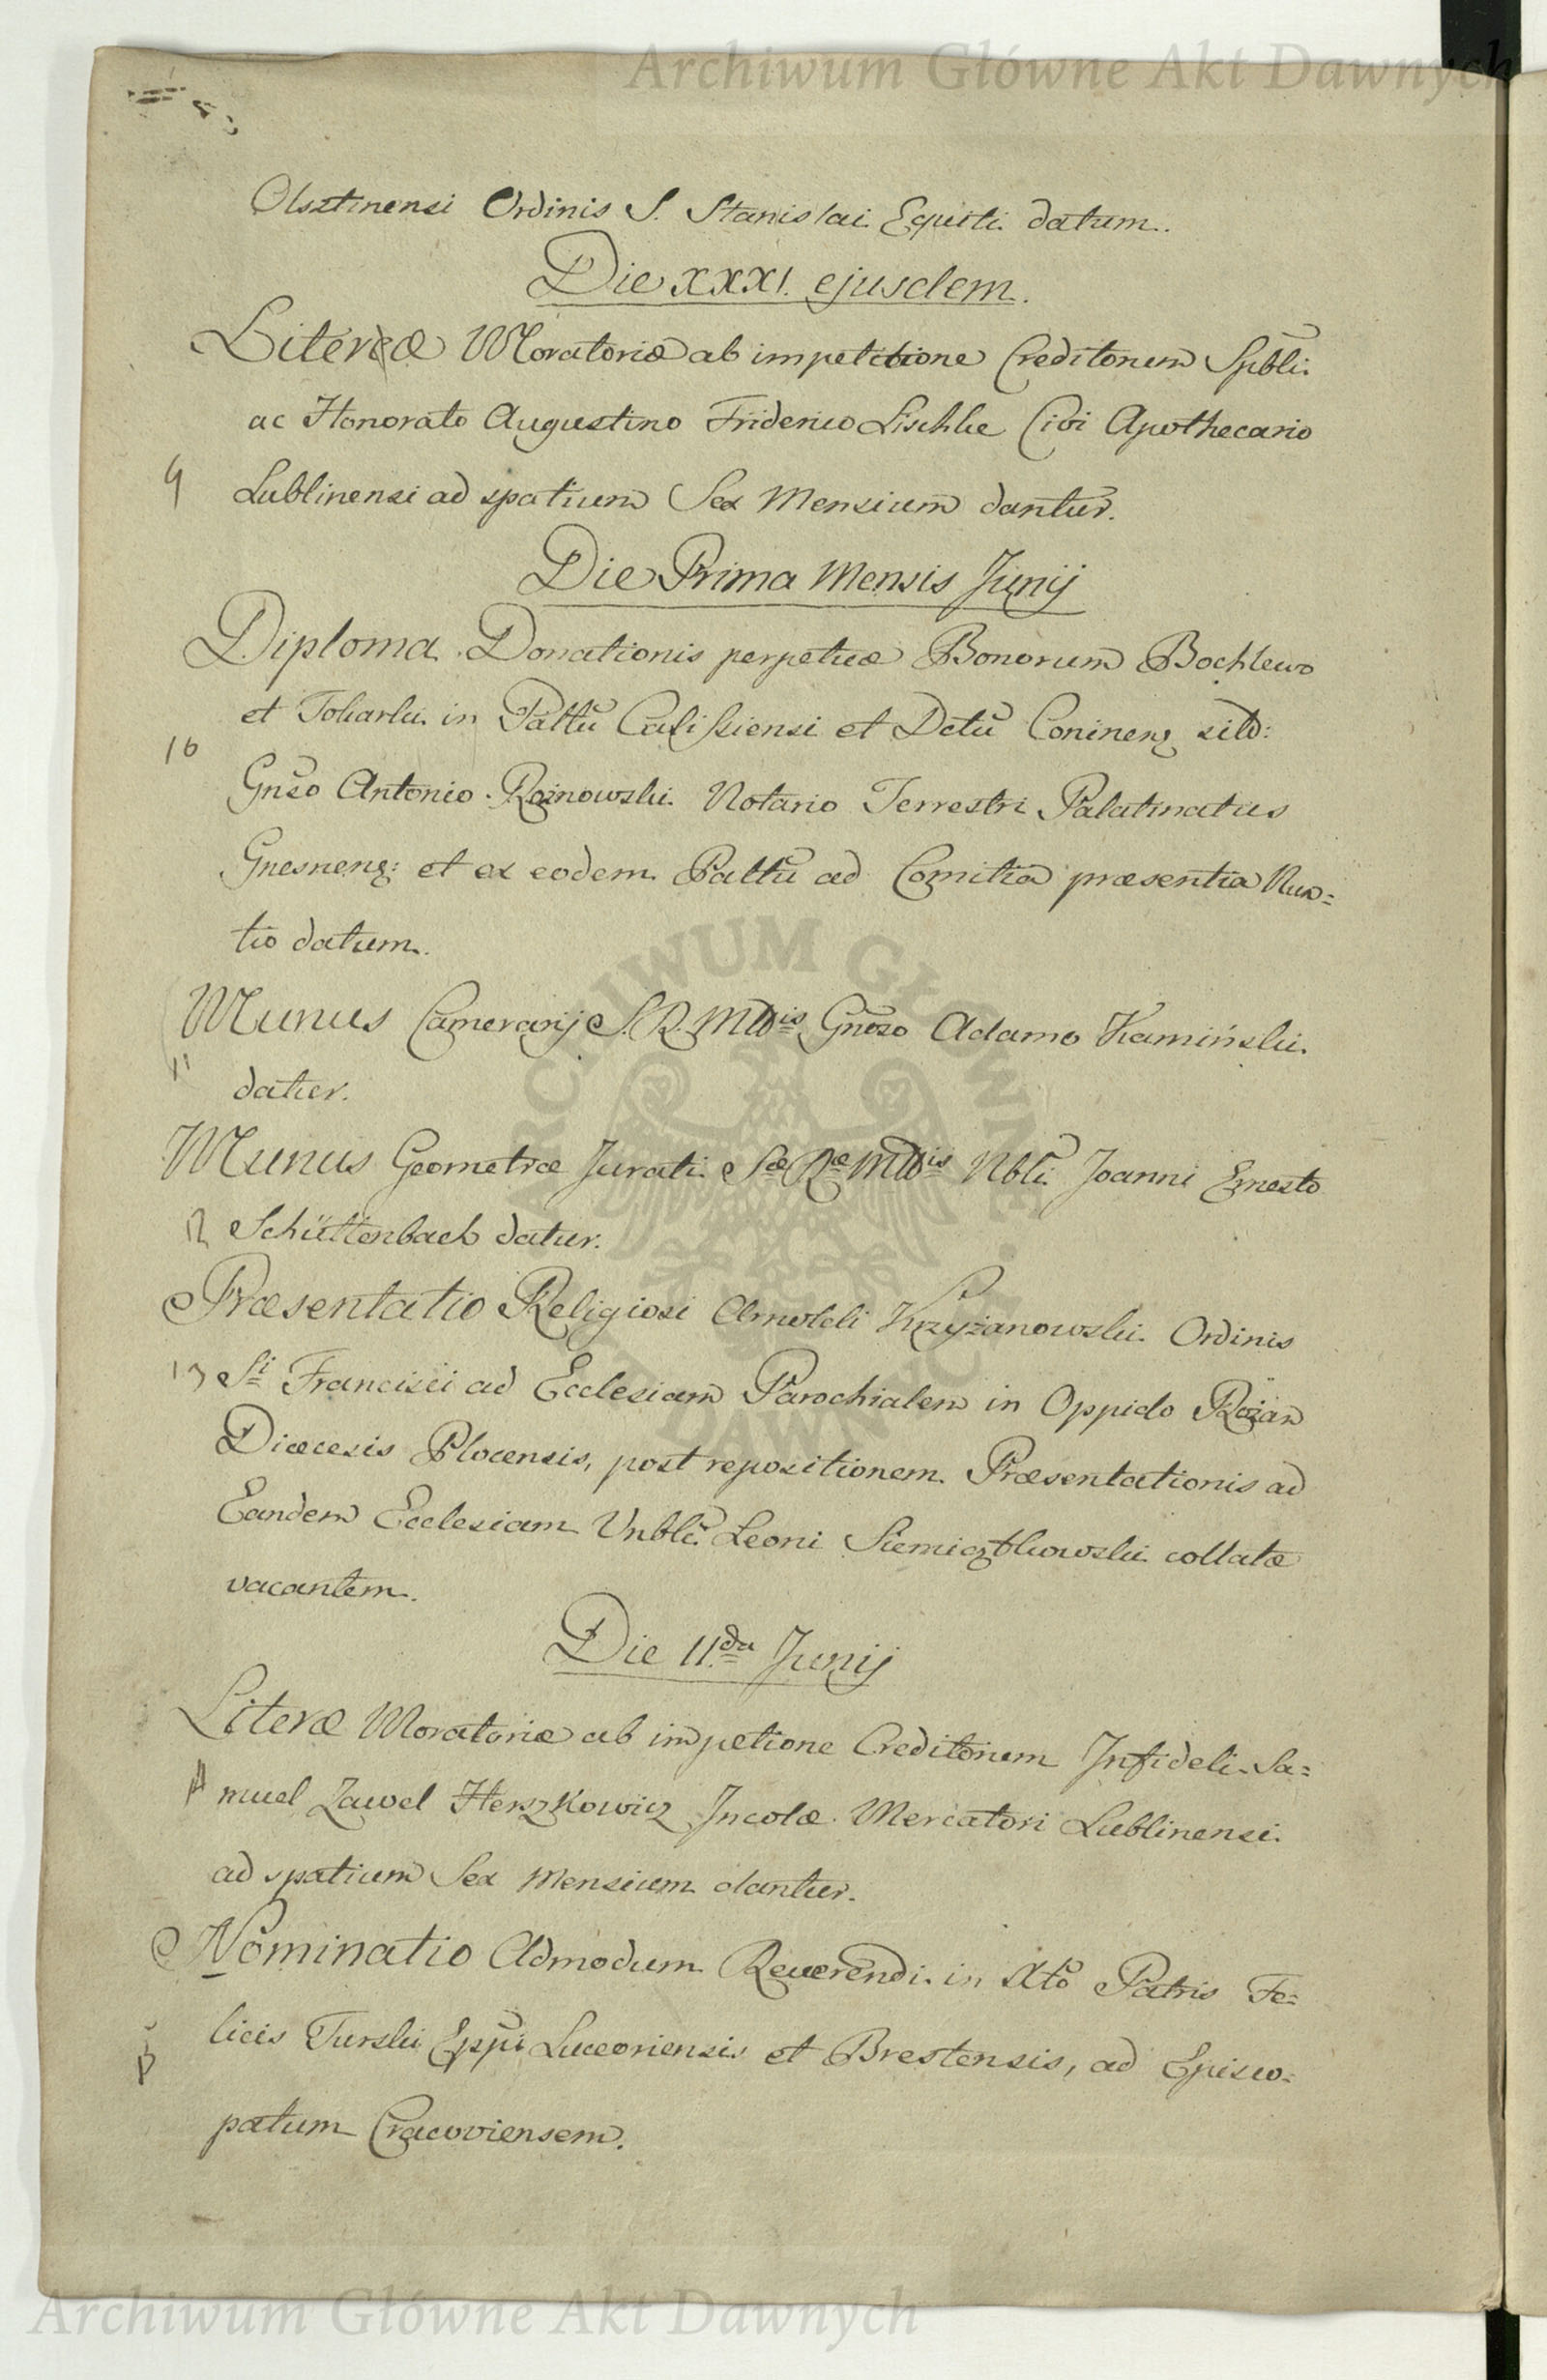 Archiwum Główne Akt Dawnych
Olsztinensi Ordinis S. Stanislai Equiti datum.
Die XXXI. ejusdem.
Literæ Moratoriæ ab impetitione Creditorum Spbli:
ac Honorato Augustino Friderico Lischke Civi Apothecario
9 Lublinensi ad spatium Sex Mensium dantur.
Die Prima Mensis Junij
Diploma Donationis perpetuæ Bonorum Bochlewo
et Tokarki in Palltu Calissiensi et Dctu Coninens sito:
10
Gnso Antonio Roznowski Notario Terrestri Palatinatus
Gnesnens: et ex eodem Palltu ad Comitia præsentia Nun=
tio datum.
Munus Camerarij S. R. Mttis Gnroso Adamo Kamiński
11
datur.
Munus Geometræ Jurati Sæ Ræ Mttis Nbli Joanni Ernesto
12 Schüttenbach datur.
Præsentatio Religiosi Arnoldi Krzyżanowski Ordinis
13 Sti Francisci ad Ecclesiam Parochialem in Oppido Rożan
Diœcesis Plocensis, post repositionem Præsentationis ad
Eandem Ecclesiam Vnbli Leoni collatæ
vacantem.
Die 11da Junij
Literæ Moratoriæ ab impetione Creditorum Infideli Sa=
14 muel Zawel Herszkowicz Incolæ Mercatori Lublinensi
ad spatium Sex Mensium dantur.
Nominatio Admodum Reuerendi in Xto Patris Fe=
licis Turski Eppi Luceoriensis et Brestensis, ad Episco=
15
patum Cracoviensem.
ARCHIWUM GŁÓWNE AKT DAWNYCH
Archiwum Główne Akt Dawnych